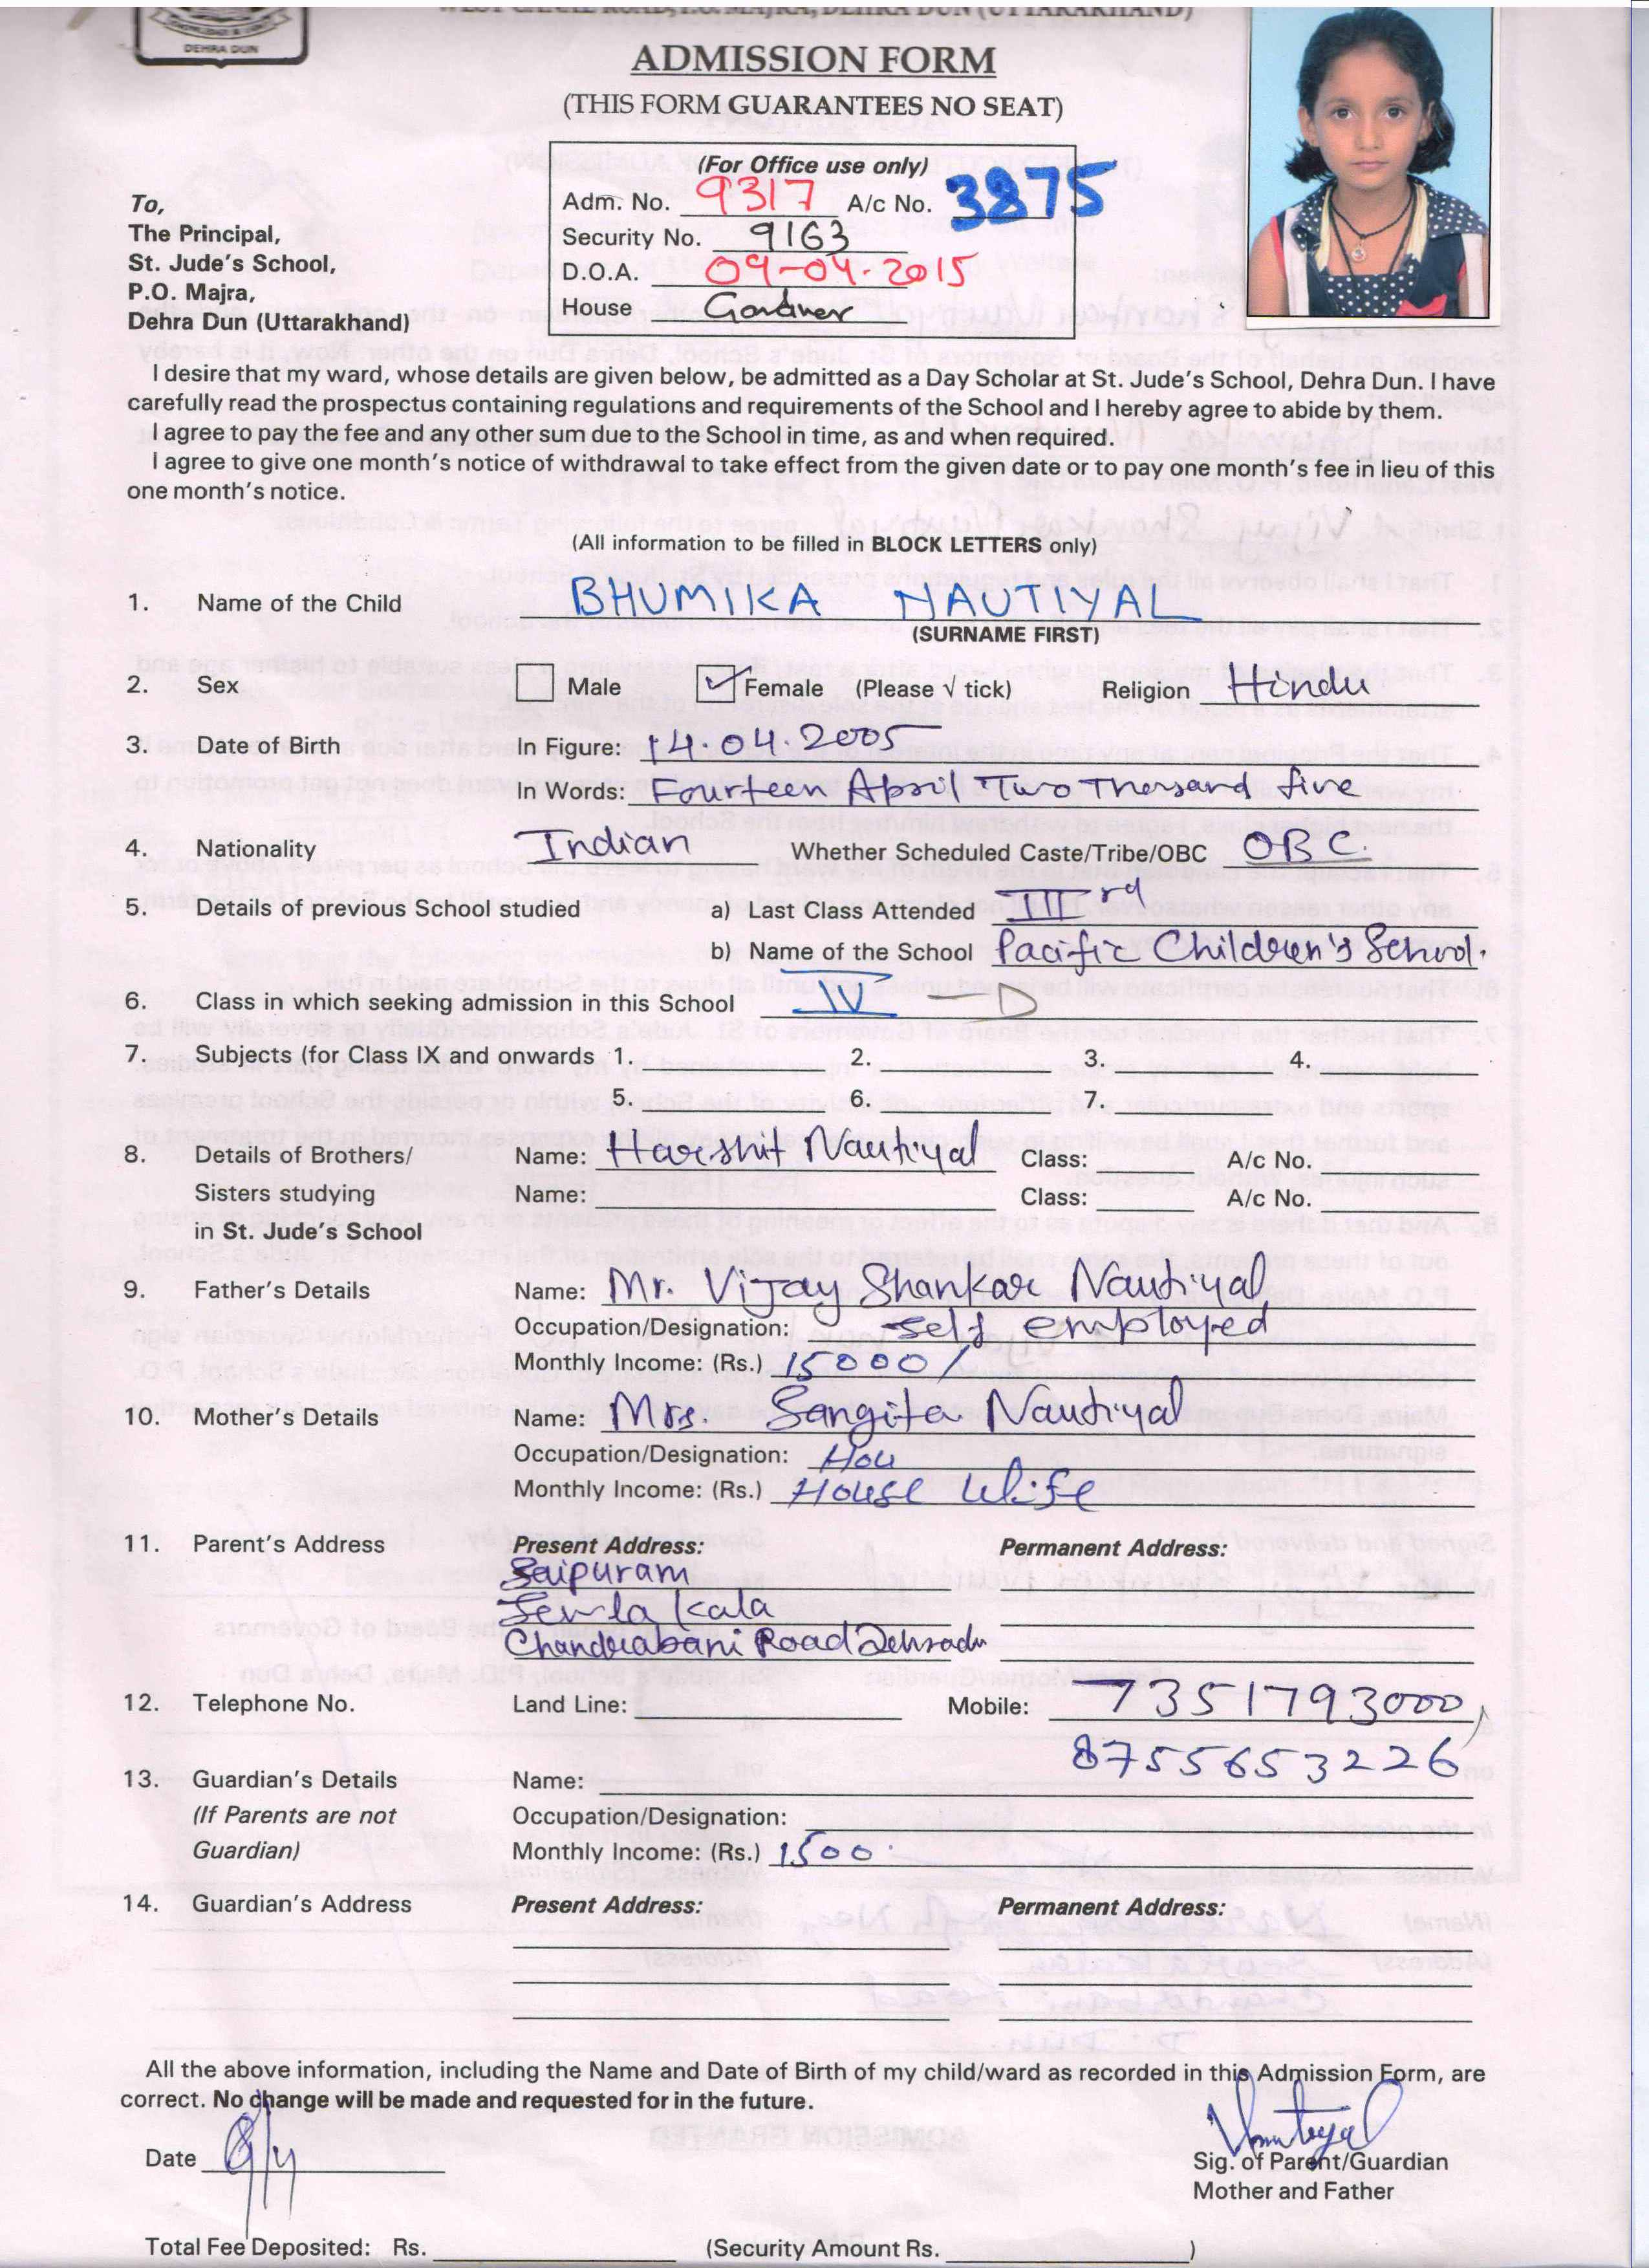 WEST CANAL ROAD, P.O. MAJRA, DEHRA DUN (UTTARAKHAND)
DEHRA DUN
ADMISSION FORM
(THIS FORM GUARANTEES NO SEAT)
(For Office use only)
Adm. No. 9317 A/c No. 3875
Security No. 9163
D.O.A. 09-04-2015
House Gardner
To,
The Principal,
St. Jude's School,
P.O. Majra,
Dehra Dun (Uttarakhand)
I desire that my ward, whose details are given below, be admitted as a Day Scholar at St. Jude's School, Dehra Dun. I have
carefully read the prospectus containing regulations and requirements of the School and I hereby agree to abide by them.
I agree to pay the fee and any other sum due to the School in time, as and when required.
I agree to give one month's notice of withdrawal to take effect from the given date or to pay one month's fee in lieu of this
one month's notice.
(All information to be filled in BLOCK LETTERS only)
1. Name of the Child BHUMIKA NAUTIYAL
(SURNAME FIRST)
2. Sex Male ✓ Female (Please √ tick) Religion Hindu
3. Date of Birth In Figure: 14.04.2005
In Words: Fourteen April Two Thousand five
4. Nationality Indian Whether Scheduled Caste/Tribe/OBC OBC.
5. Details of previous School studied a) Last Class Attended III rd
b) Name of the School Pacific Children's School.
6. Class in which seeking admission in this School IV - D
7. Subjects (for Class IX and onwards 1. 2. 3. 4.
5. 6. 7.
8. Details of Brothers/ Name: Harshit Nautiyal Class: A/c No.
Sisters studying Name: Class: A/c No.
in St. Jude's School
9. Father's Details Name: Mr. Vijay Shankar Nautiyal
Occupation/Designation: self employed
Monthly Income: (Rs.) 15000/
10. Mother's Details Name: Mrs. Sangita Nautiyal
Occupation/Designation: Hou
Monthly Income: (Rs.) House Wife
11. Parent's Address Present Address: Permanent Address:
Saipuram
Sewla Kala
Chandrabani Road Dehradun
12. Telephone No. Land Line: Mobile: 7351793000,
8755653226
13. Guardian's Details Name:
(If Parents are not Occupation/Designation:
Guardian) Monthly Income: (Rs.) 1500
14. Guardian's Address Present Address: Permanent Address:
All the above information, including the Name and Date of Birth of my child/ward as recorded in this Admission Form, are
correct. No change will be made and requested for in the future.
Date 8/4
Sig. of Parent/Guardian
Mother and Father
Total Fee Deposited: Rs. (Security Amount Rs. )